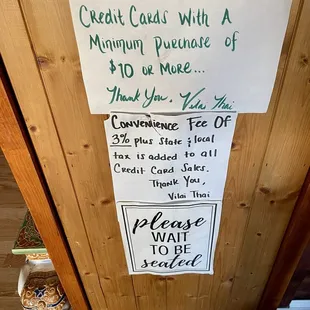 Credit Cards With A
Minimum Purchase of
$10 or More...
Thank You, Vilai Thai
Convenience Fee Of
3% plus State & local
tax is added to all
Credit Card Sales.
Thank You,
Vilai Thai
please
WAIT
TO BE
seated